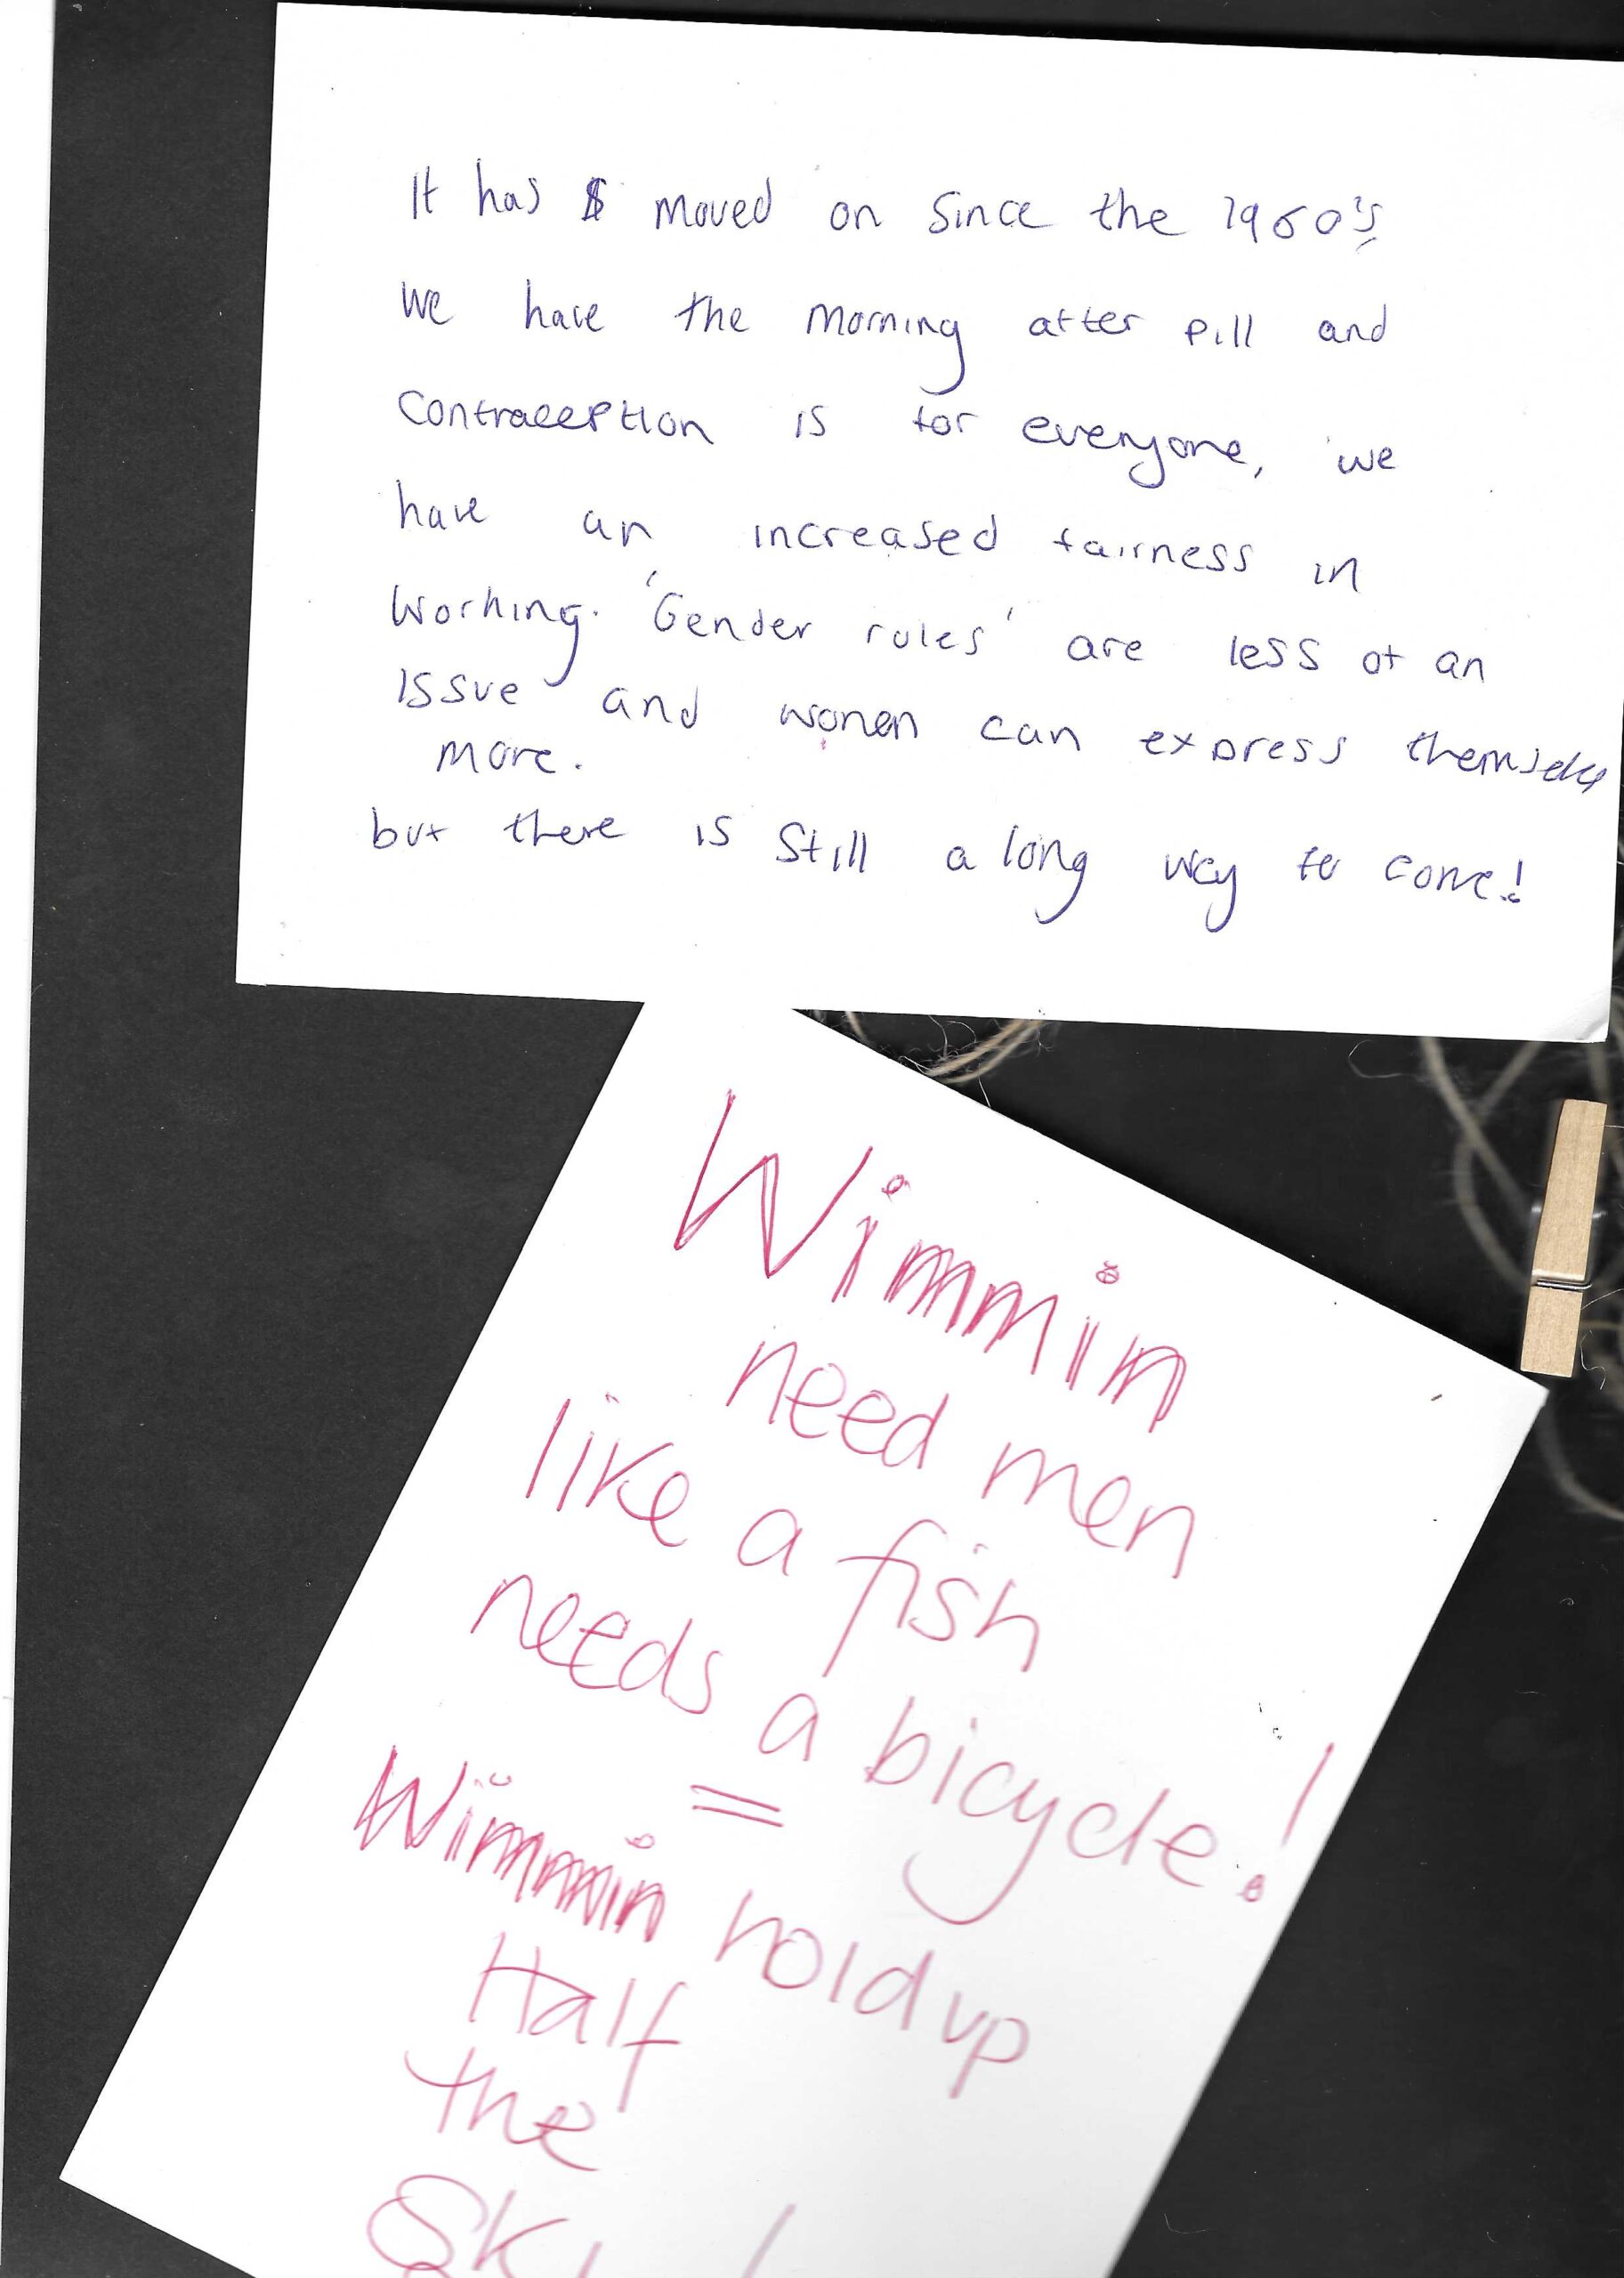 It has moved on since the 1960's
we have the morning after pill and
contraception is for everyone, we
have an increased fairness in
working. 'Gender rules' are less of an
issue and women can express themselves
more.
but there is still a long way to come!
Wimmin
need men
like a fish
needs a bicycle!
=
Wimmin hold up
Half
the